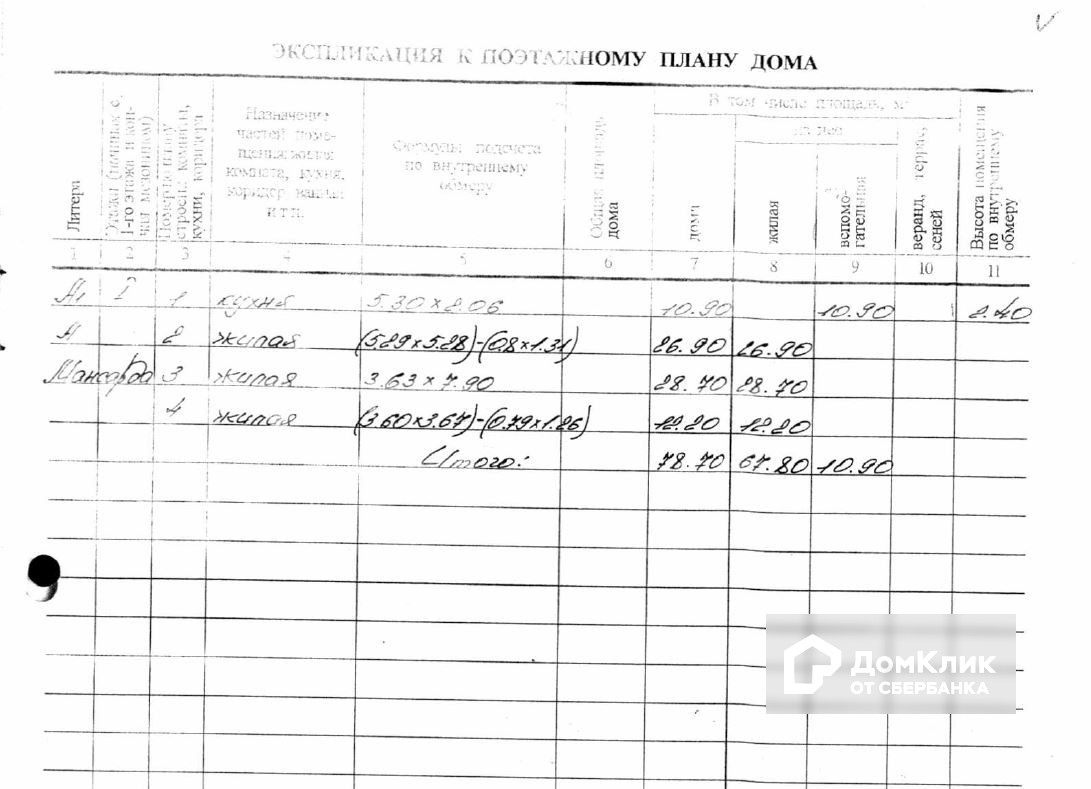 ЭКСПЛИКАЦИЯ К ПОЭТАЖНОМУ ПЛАНУ ДОМА
Литера
Этажи (начиная с
1-го этажа и кон-
чая мезонином)
строения, комнаты,
кухни, коридора
Назначение
частей поме-
щения: жилая
комната, кухня,
коридор, ванная
и т.п.
Формулы подсчета
по внутреннему
обмеру
Общая площадь
дома
В том числе площадь, м²
дома
из нее
жилая
вспомо-
гательная
веранд, террас,
сеней
Высота помещения
по внутреннему
обмеру
1 2 3 4 5 6 7 8 9 10 11
А₁ I 1 кухня 5.30 x 2.06 10.90 10.90 2.40
А 2 жилая (5.29 x 5.28)-(0.8 x 1.31) 26.90 26.90
Мансарда 3 жилая 3.63 x 7.90 28.70 28.70
4 жилая (3.60 x 3.67)-(0.79 x 1.26) 12.20 12.20
Итого: 78.70 67.80 10.90
ДомКлик
ОТ СБЕРБАНКА